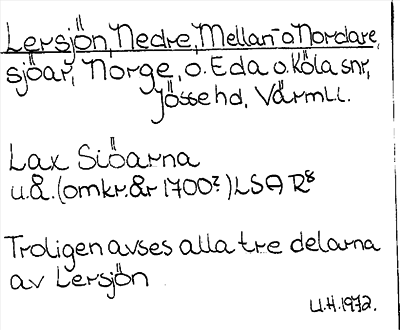 Lersjön, Nedre, Mellan- o Nordare,
sjöar, Norge, o. Eda o. Köla snr,
Jösse hd, Värml.
Lax Siöarna
u.å. (omkr. år 1700?) LSA R8
Troligen avses alla tre delarna
av Lersjön
U.H. 1972.